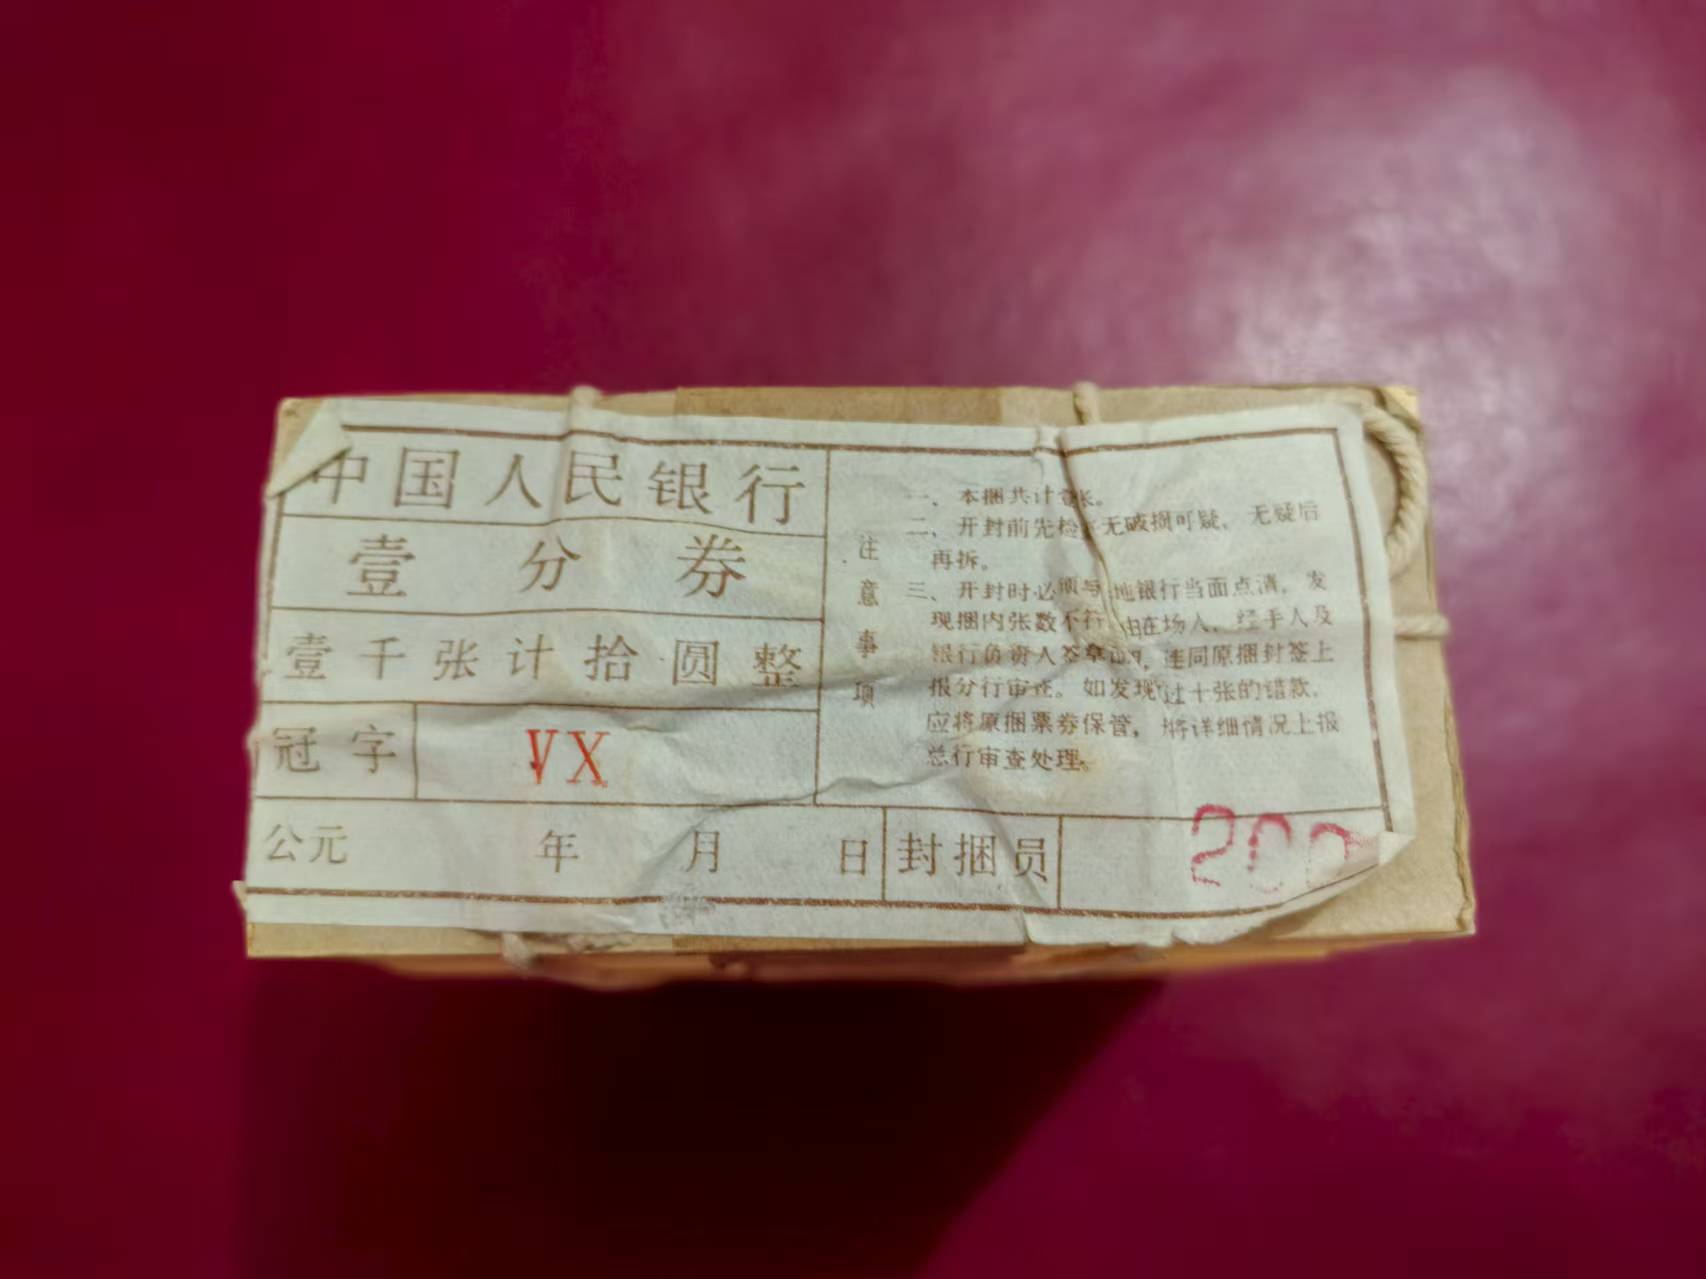 中国人民银行
壹分券
壹千张计拾圆整
冠字 VX
公元 年 月 日 封捆员 200
注意事项
一、本捆共计壹 张。
二、开封前先检 无破损可疑，无疑后
再拆。
三、开封时必须与 地银行当面点清，发
现捆内张数不符 由在场人，经手人及
银行负责人签章 ，连同原捆封签上
报分行审查。如发现 过十张的错款，
应将原捆票券保管，将详细情况上报
总行审查处理。